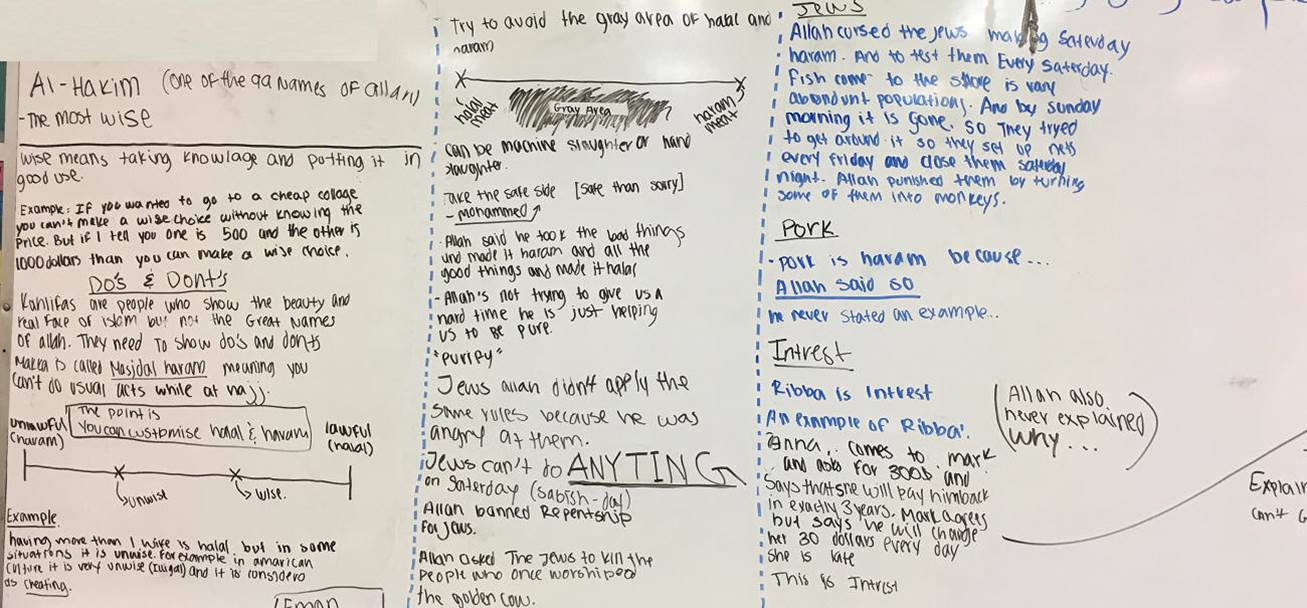 Al-Hakim (One of the 99 names of allah)
-The most wise
wise means taking knowlage and potting it in
good use.
Example: If you wanted to go to a cheap collage
you can't make a wise choice without knowing the
Price. But if I tell you one is 500 and the other is
1000 dollars than you can make a wise choice.
Do's & Dont's
Kahlifas are people who show the beauty and
real face of islam but not the Great Names
of allah. They need to show do's and donts
Makka is called Masjidal haram meaning you
can't do usual acts while at hajj.
The point is
You can customise halal & haram
unlawful
(haram)
lawful
(halal)
unwise
wise.
Example
having more than 1 wife is halal but in some
situations it is unwise. For example in amarican
culture it is very unwise and it is
as cheating.
Eman
Try to avoid the gray area of halal and
haram
halal
meat
Gray Area
haram
meat
can be machine slaughter or hand
slaughter.
Take the safe side [safe than sorry]
- mohammed
-Allah said he took the bad things
and made it haram and all the
good things and made it halal
-Allah's not trying to give us a
hard time he is just helping
us to be pure.
"purify"
Jews allah didn't apply the
same rules because he was
angry at them.
Jews can't do ANYTING
on Saterday (sabish-day)
Allah banned Repentship
for Jews.
Allah asked The Jews to kill the
people who once worshiped
the golden cow.
JEWS
Allah cursed the Jews making Saterday
haram. And to test them Every Saterday.
Fish come to the shore is vary
abondunt populations. And by sunday
morning it is gone. So They tryed
to get around it so they set up nets
every friday and close them saterday
night. Allah punished them by turning
some of them into monkeys.
Pork
- pork is haram because...
Allah said so
he never stated an example..
Intrest
Ribba is Intrest
An example of Ribba:
Anna, comes to mark
and asks for 300$ and
says that she will pay him back
in exactly 3 years. Mark agrees
but says he will charge
her 30 dollars every day
she is late
This is Intrest
(Allah also
never explained
why...)
Explain
can't